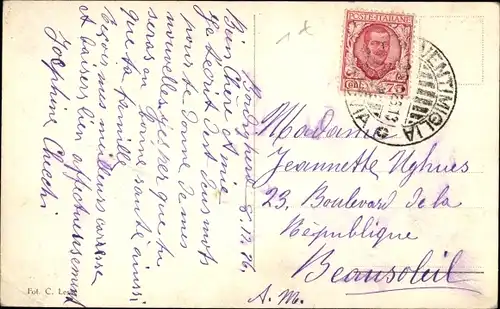 Bordighera 8.12.26.
Bien Chère Amie
Je t'ecrit dest deus mots
pour te donne de mes
nouvelles, j'esper que tu
seras en bonne santé aussi
que ta famille
Reçois mes meilleurs
et baisers bien affectueusement
Josephine Checchi
Fot. C. Le
POSTE ITALIANE
75
VENTIMIGLIA
Madame
Jeannette Nghues
23, Boulevard de la
République
Beausoleil
A. M.